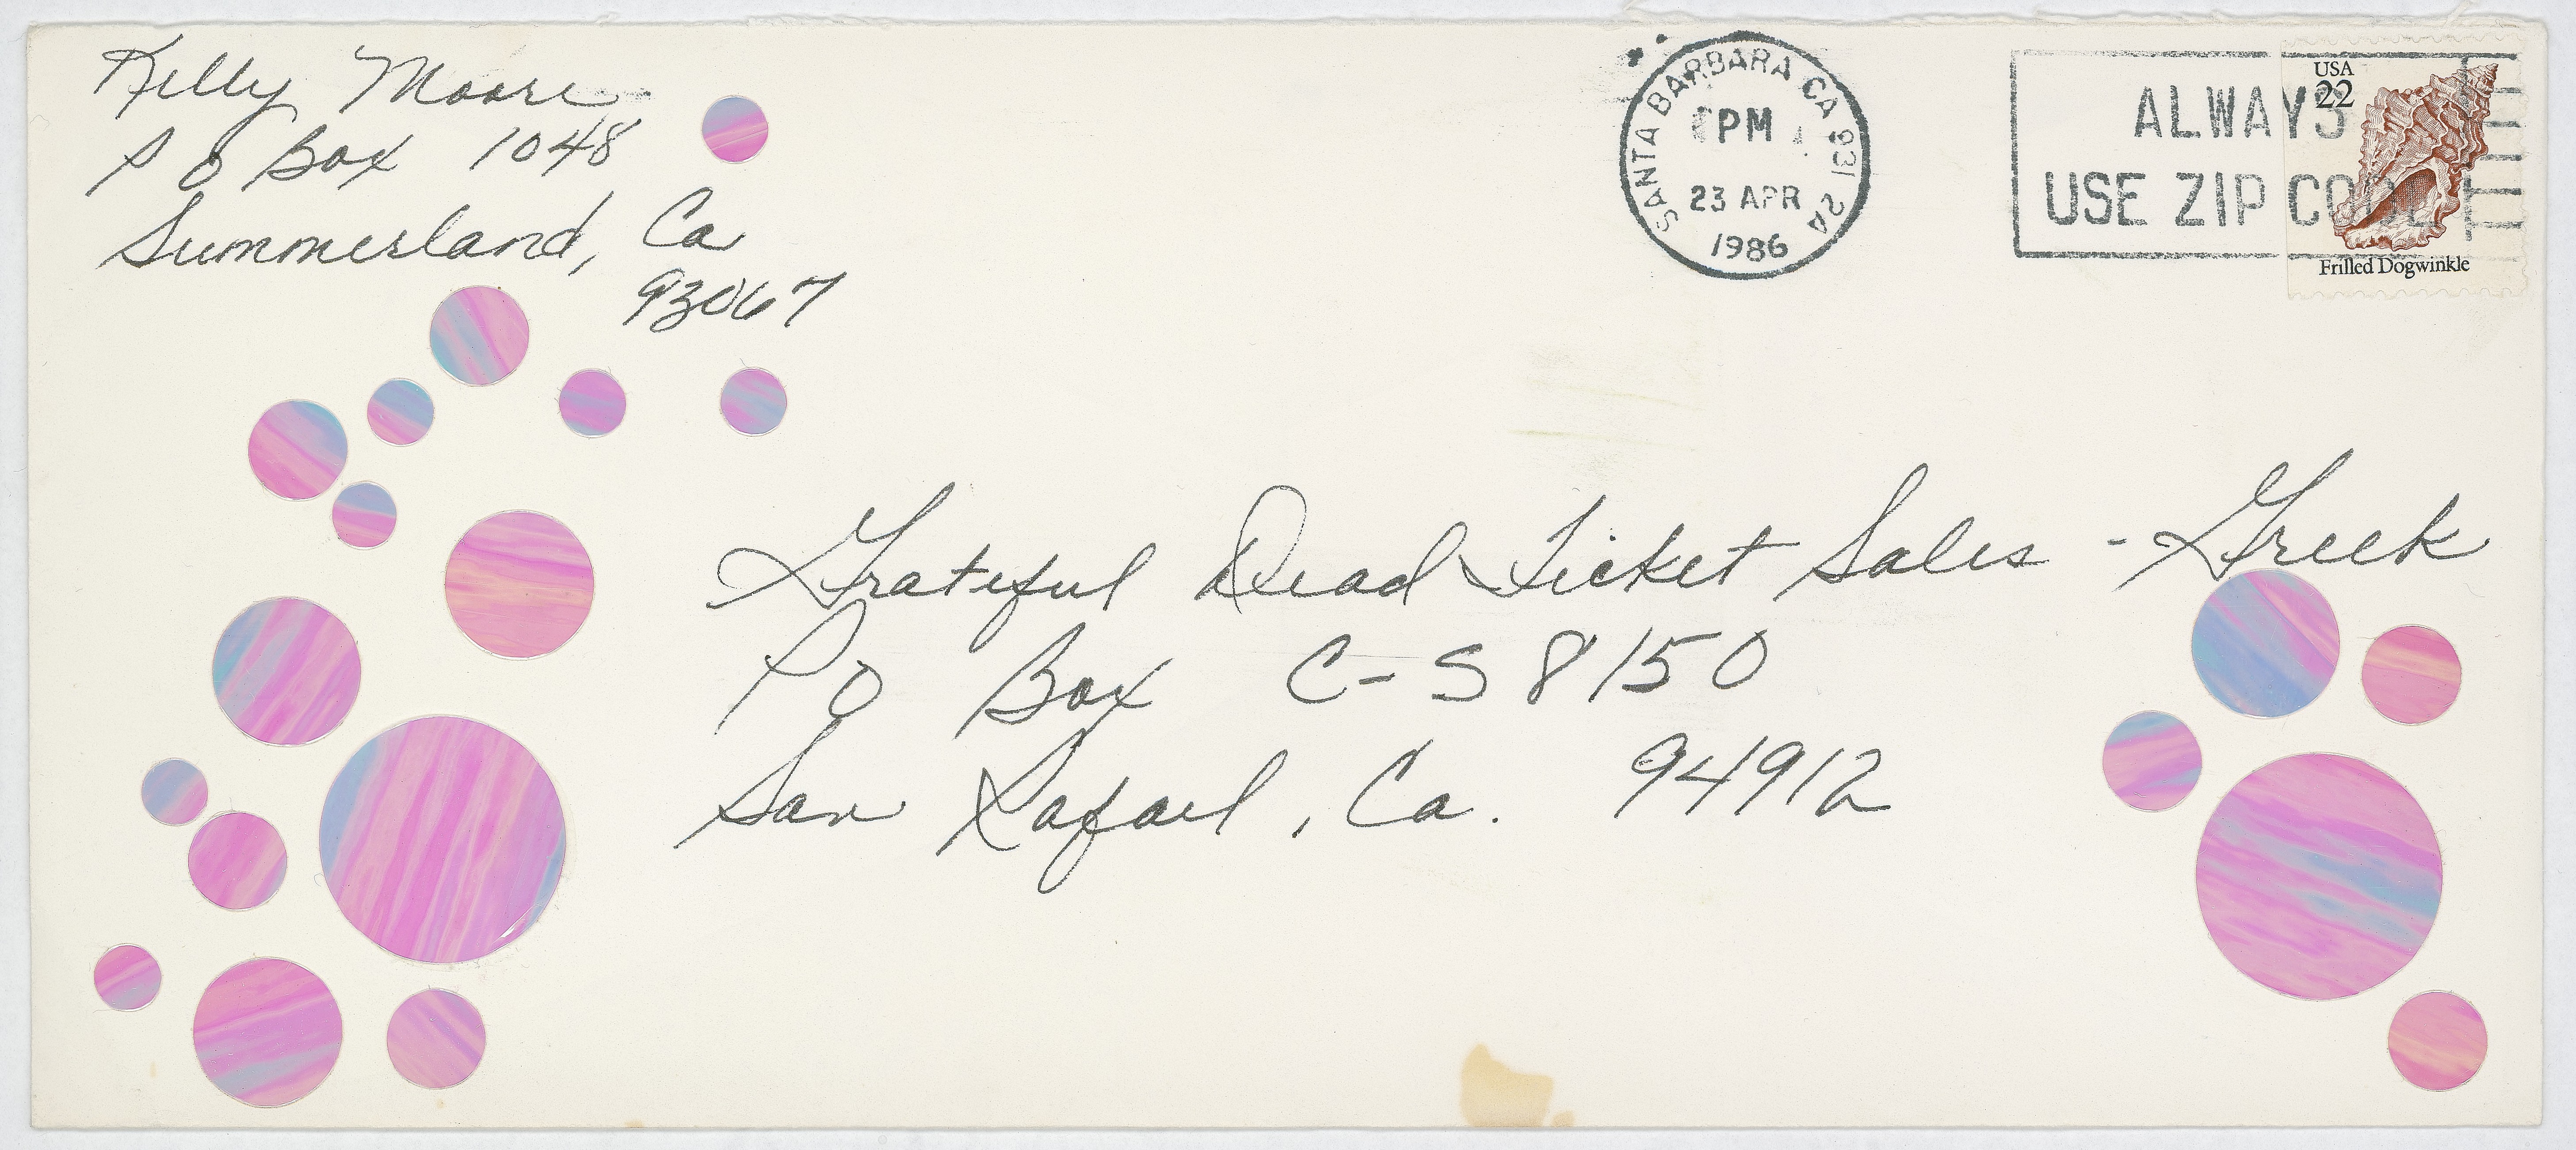 Kelly Moore
P O Box 1048
Summerland, Ca
93067
SANTA BARBARA CA 931 2A
PM
23 APR
1986
ALWAYS
USE ZIP CODE
USA
22
Frilled Dogwinkle
Grateful Dead Ticket Sales - Greek
PO Box C-S 8150
San Rafael, Ca. 94912